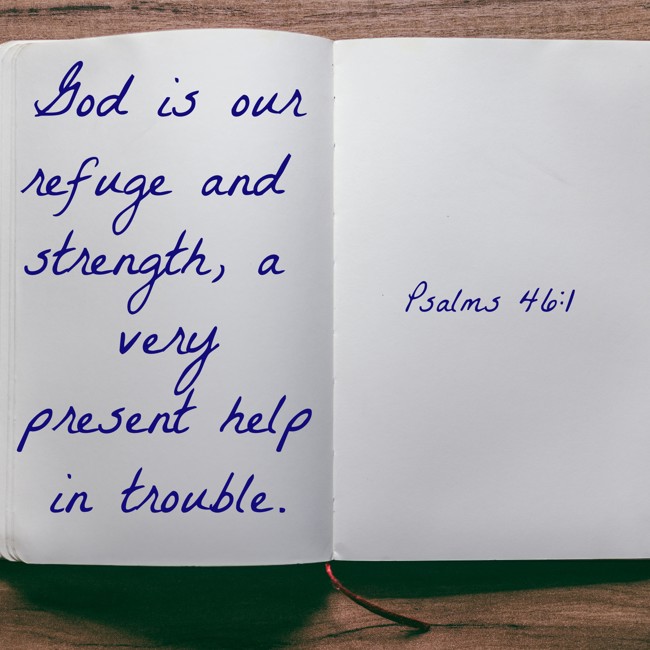 God is our
refuge and
strength, a
very
present help
in trouble.
Psalms 46:1